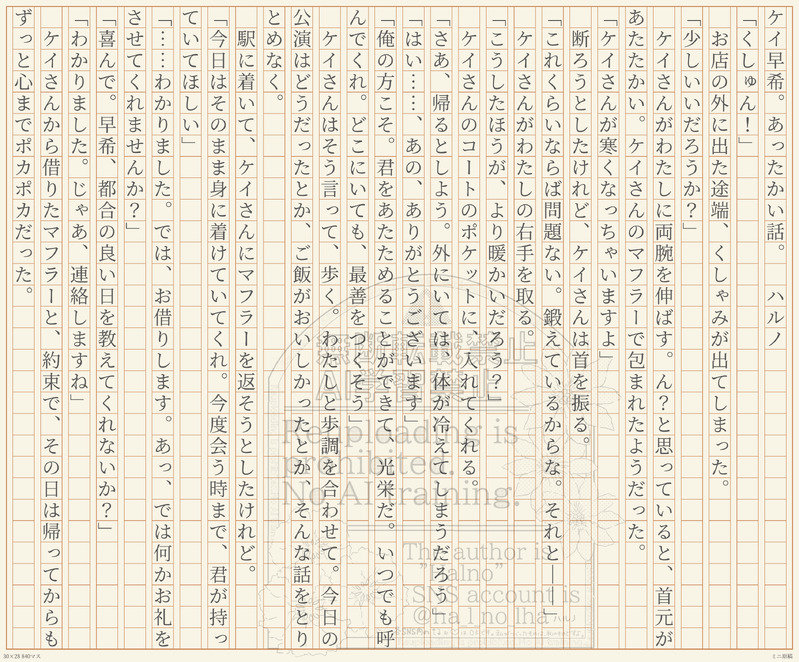 ケイ早希。あったかい話。　ハルノ
「くしゅん！」
　お店の外に出た途端、くしゃみが出てしまった。
「少しいいだろうか？」
　ケイさんがわたしに両腕を伸ばす。ん？と思っていると、首元が
あたたかい。ケイさんのマフラーで包まれたようだった。
「ケイさんが寒くなっちゃいますよ」
　断ろうとしたけれど、ケイさんは首を振る。
「これくらいならば問題ない。鍛えているからな。それと――」
　ケイさんがわたしの右手を取る。
「こうしたほうが、より暖かいだろう？」
　ケイさんのコートのポケットに、入れてくれる。
「さあ、帰るとしよう。外にいては、体が冷えてしまうだろう」
「はい……、あの、ありがとうございます」
「俺の方こそ。君をあたためることができて、光栄だ。いつでも呼
んでくれ。どこにいても、最善をつくそう」
　ケイさんはそう言って、歩く。わたしと歩調を合わせて。今日の
公演はどうだったとか、ご飯がおいしかったとか、そんな話をとり
とめなく。
　駅に着いて、ケイさんにマフラーを返そうとしたけれど。
「今日はそのまま身に着けていてくれ。今度会う時まで、君が持っ
ていてほしい」
「……わかりました。では、お借りします。あっ、では何かお礼を
させてくれませんか？」
「喜んで。早希、都合の良い日を教えてくれないか？」
「わかりました。じゃあ、連絡しますね」
　ケイさんから借りたマフラーと、約束で、その日は帰ってからも
ずっと心までポカポカだった。
無断転載禁止
AI学習禁止
Reuploading is
prohibited.
No AI training.
The author is
"halno"
SNS account is
@ha1no1ha
30×28 840マス
ミニ原稿